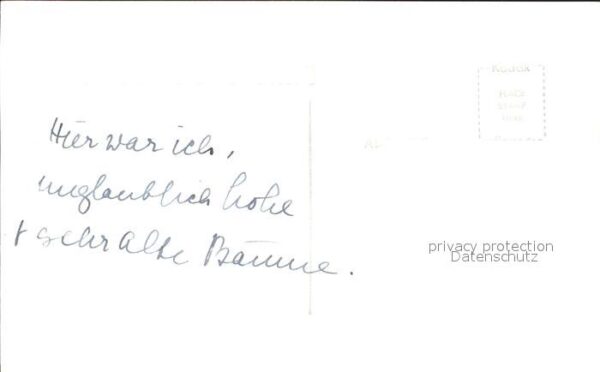 Kodak
PLACE
STAMP
HERE
Hier war ich,
unglaublich hohe
+ sehr alte Bäume.
privacy protection
Datenschutz